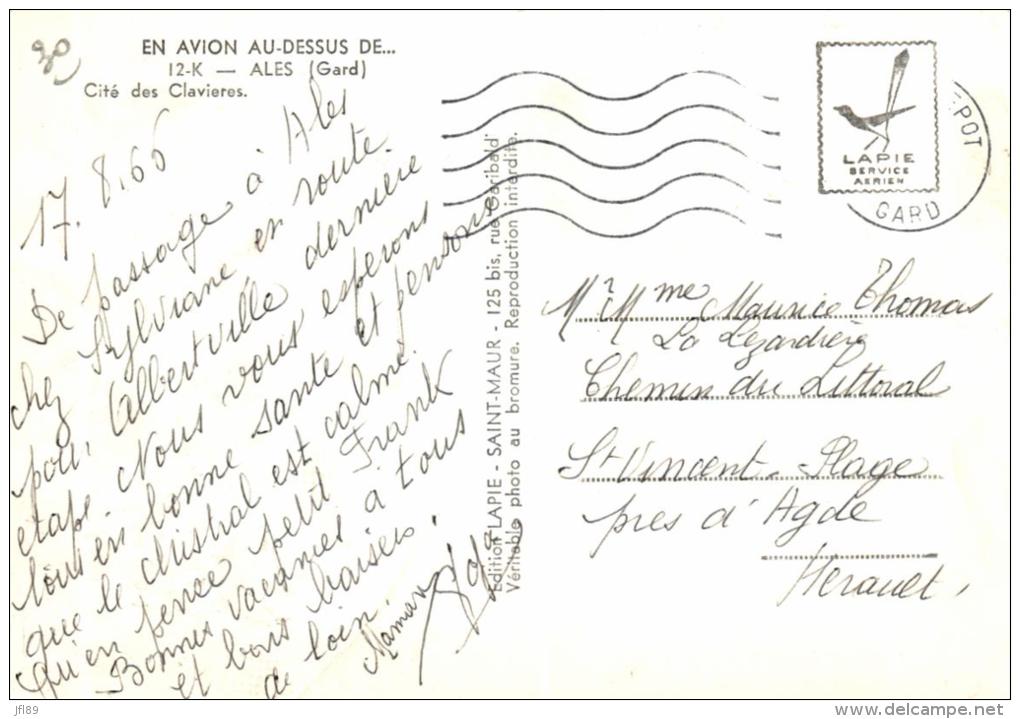 30
EN AVION AU-DESSUS DE...
12-K — ALES (Gard)
Cité des Clavieres.
17.8.66
De passage à Ales
chez Sylviane en route
pour Albertville dernière
étape. Nous vous esperons
tous en bonne santé et pensons
que le Mistral est calmé.
Qu'en pense petit Frank
Bonnes vacances à tous
et bons baisers
de loin.
Maman
Edition "LAPIE - SAINT-MAUR - 125 bis, rue Garibaldi
Véritable photo au bromure. Reproduction interdite.
LAPIE
SERVICE
AERIEN
POT
GARD
Mr Mme Maurice Thomas
La Lezardière
Chemin du Littoral
St Vincent-Plage
près d'Agde
Herault,
jfl89
delcampe.net